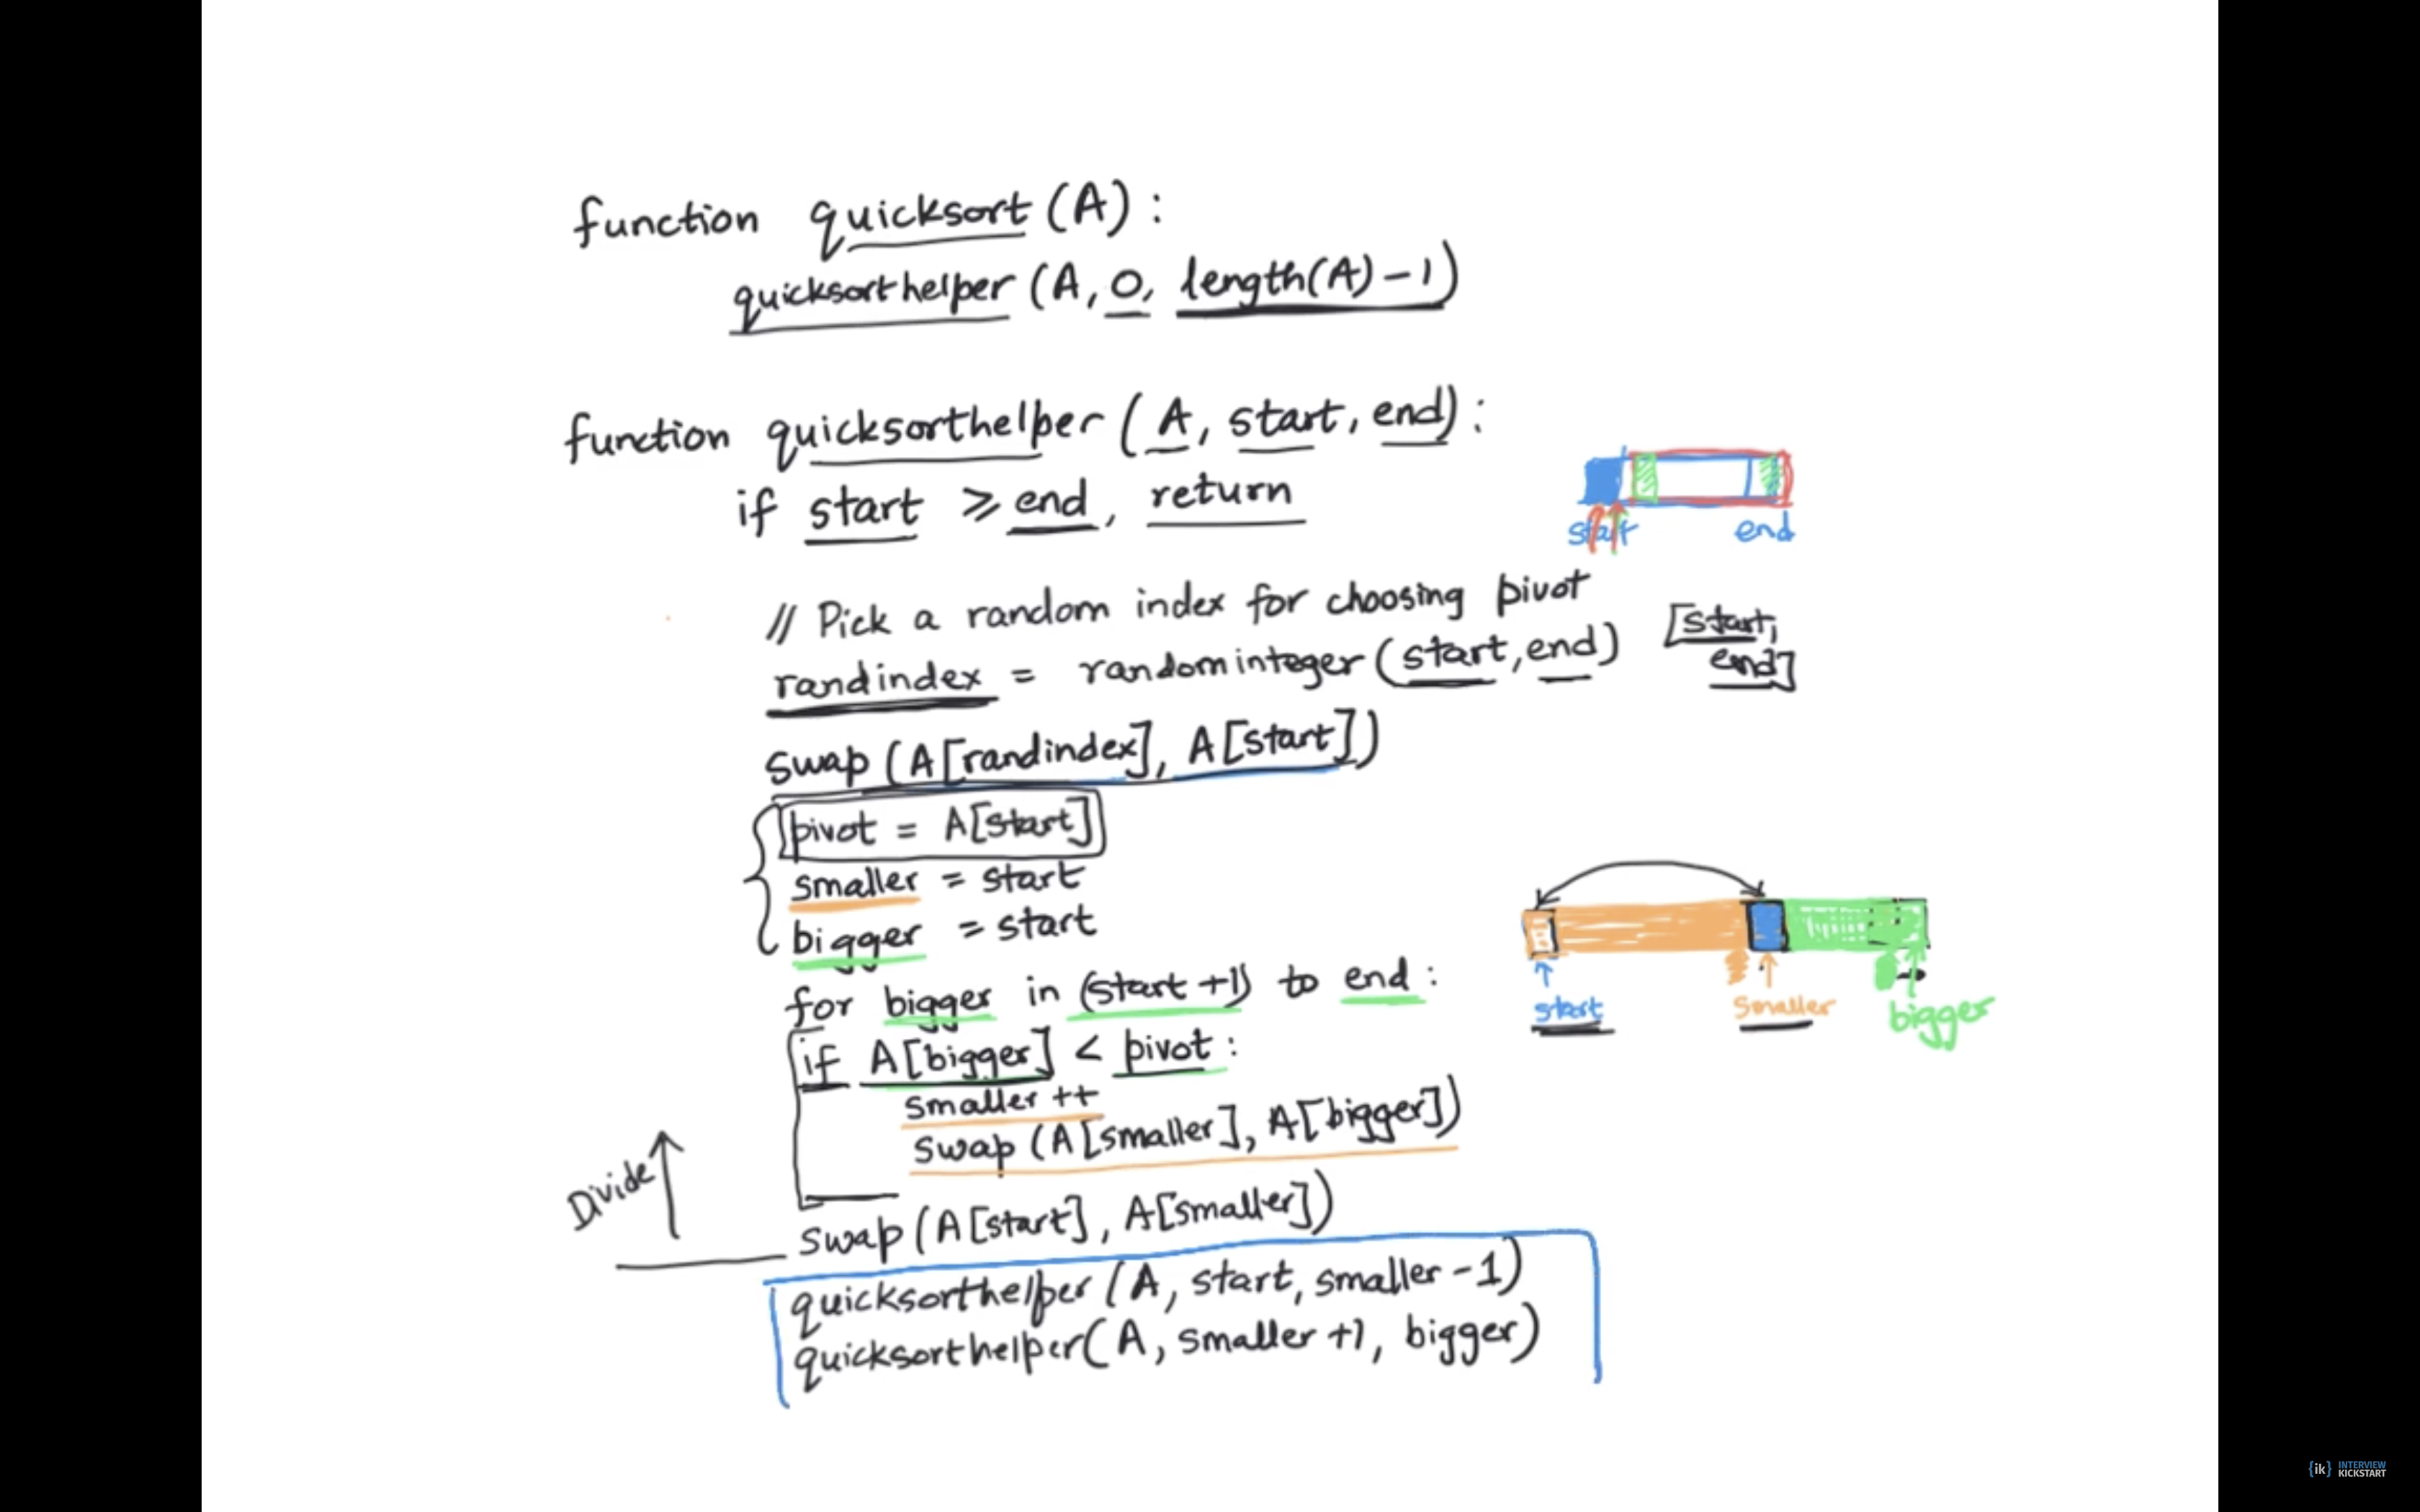 function quicksort (A) :
quicksorthelper (A, 0, length(A) - 1)
function quicksorthelper ( A, start, end) :
if start ≥ end, return
start end
// Pick a random index for choosing pivot
randindex = randominteger (start, end) [start,
end]
swap (A[randindex], A[start])
pivot = A[start]
smaller = start
bigger = start
for bigger in (start +1) to end :
start smaller bigger
if A[bigger] < pivot :
smaller ++
swap (A[smaller], A[bigger])
Divide
swap (A[start], A[smaller])
quicksorthelper (A, start, smaller -1)
quicksorthelper (A, smaller +1, bigger)
{ik} INTERVIEW
KICKSTART